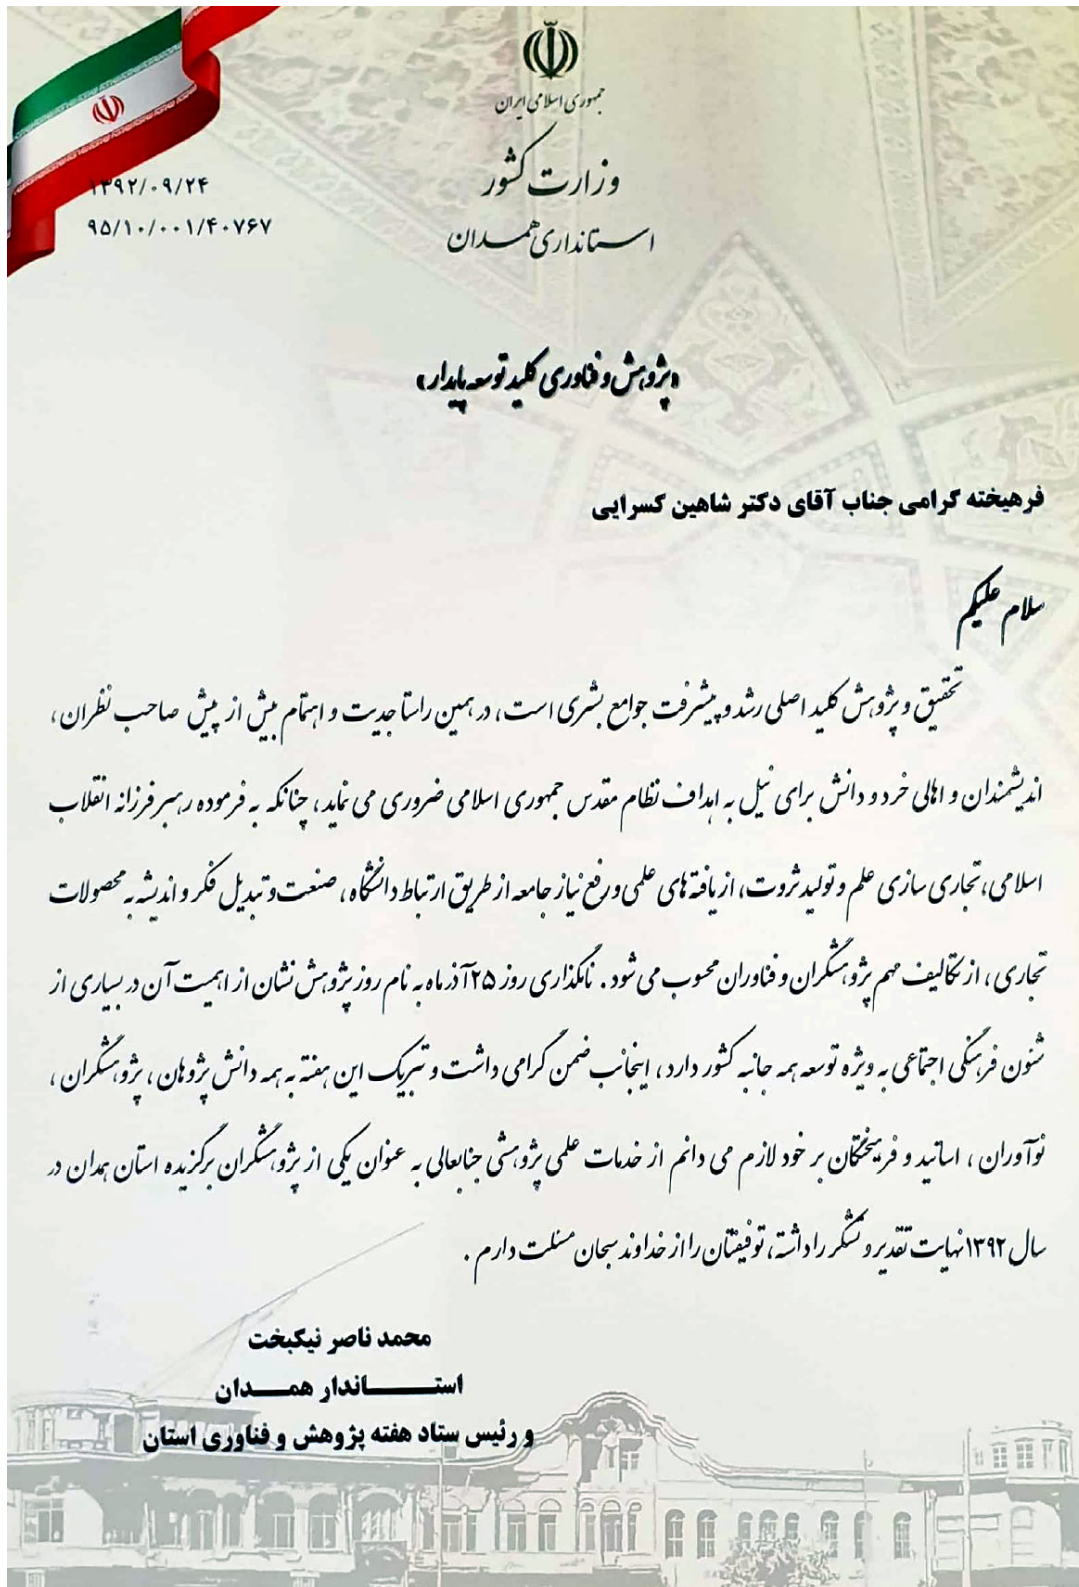 جمهوری اسلامی ایران
وزارت کشور
استانداری همدان
۱۳۹۲/۰۹/۲۴
۹۵/۱۰/۰۰۱/۴۰۷۶۷
«پژوهش و فناوری کلید توسعه پایدار»
فرهیخته گرامی جناب آقای دکتر شاهین کسرایی
سلام علیکم
تحقیق و پژوهش کلید اصلی رشد و پیشرفت جوامع بشری است، در همین راستا جدیت و اهتمام بیش از پیش صاحب نظران،
اندیشمندان و اهالی خرد و دانش برای نیل به اهداف نظام مقدس جمهوری اسلامی ضروری می نماید، چنانکه به فرموده رهبر فرزانه انقلاب
اسلامی، تجاری سازی علم و تولید ثروت، از یافته های علمی و رفع نیاز جامعه از طریق ارتباط دانشگاه، صنعت و تبدیل فکر و اندیشه به محصولات
تجاری، از تکالیف مهم پژوهشگران و فناوران محسوب می شود. نامگذاری روز ۲۵ آذرماه به نام روز پژوهش نشان از اهمیت آن در بسیاری از
شئون فرهنگی اجتماعی به ویژه توسعه همه جانبه کشور دارد، اینجانب ضمن گرامی داشت و تبریک این هفته به همه دانش پژوهان، پژوهشگران،
نوآوران، اساتید و فرهیختگان بر خود لازم می دانم از خدمات علمی پژوهشی جنابعالی به عنوان یکی از پژوهشگران برگزیده استان همدان در
سال ۱۳۹۲ نهایت تقدیر و تشکر را داشته، توفیقتان را از خداوند سبحان مسئلت دارم.
محمد ناصر نیکبخت
استاندار همدان
و رئیس ستاد هفته پژوهش و فناوری استان